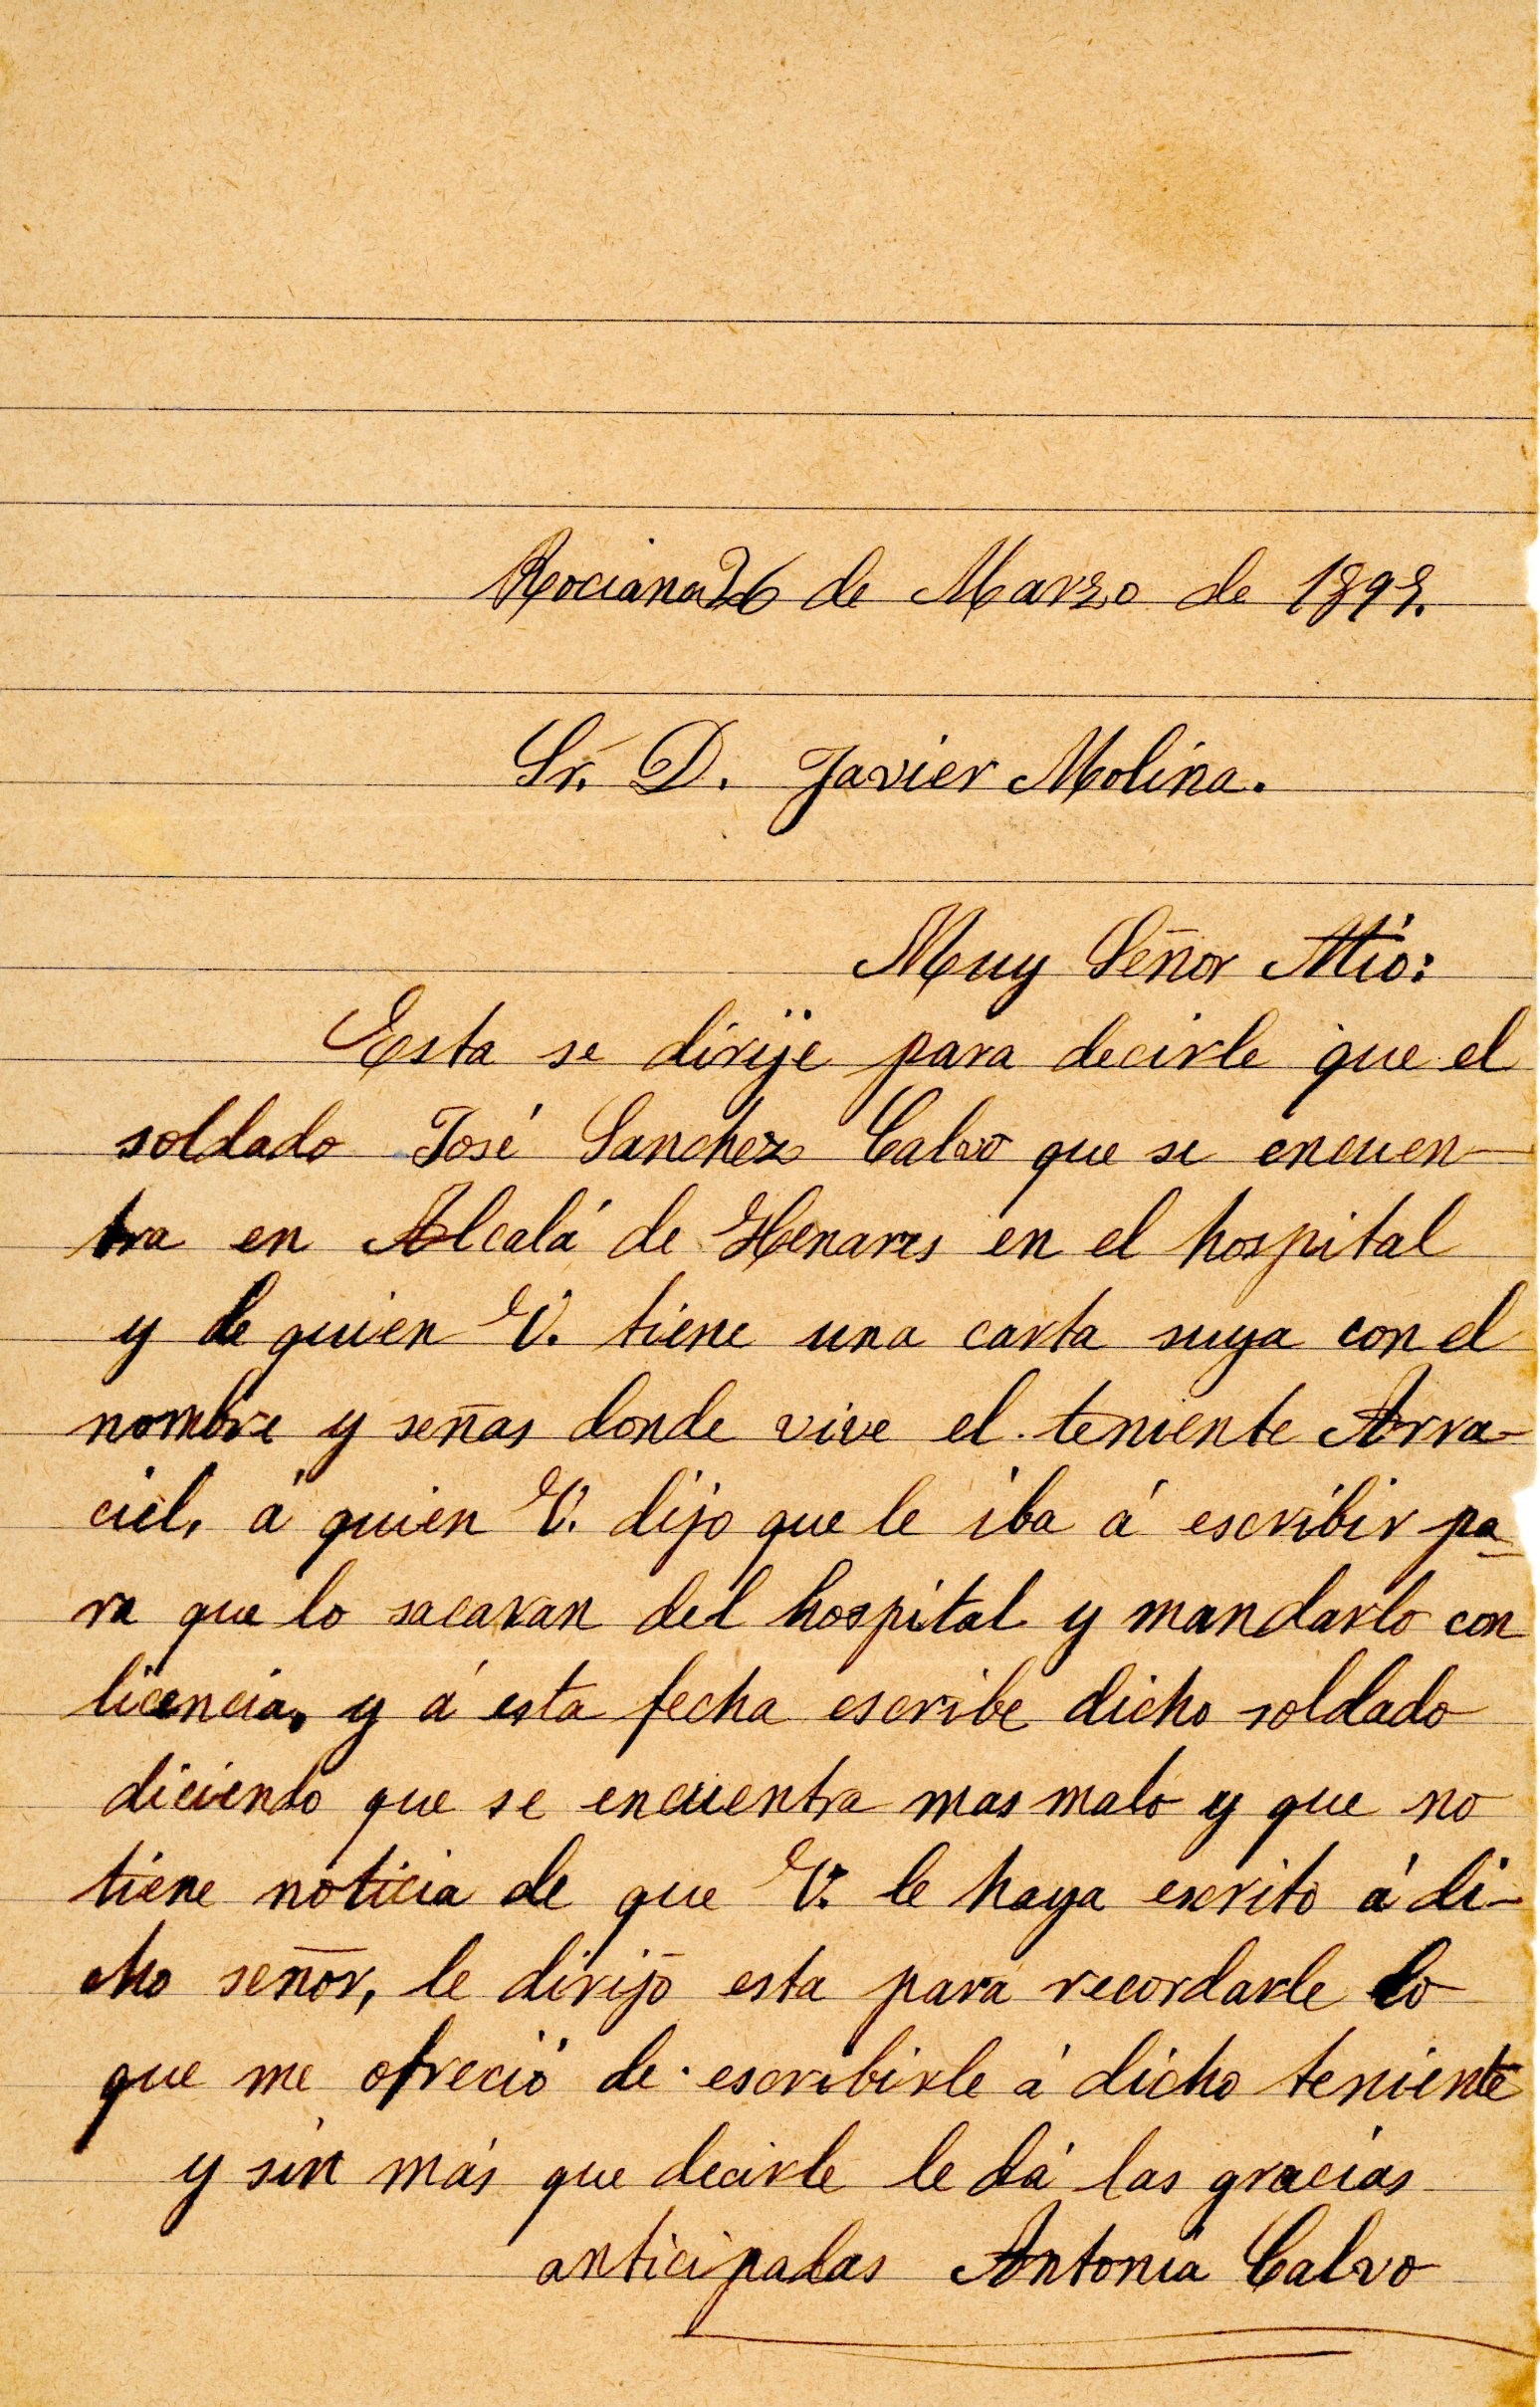 Rociana 26 de Marzo de 1898.
Sr. D. Javier Molina.
Muy Señor Mio:
Esta se dirije para decirle que el
soldado José Sanchez Calvo que se encuen-
tra en Alcalá de Henares en el hospital
y de quien V. tiene una carta suya con el
nombre y señas donde vive el teniente Arra-
ciel, á quien V. dijo que le iba á escribir pa-
ra que lo sacaran del hospital y mandarlo con
licencia, y á esta fecha escribe dicho soldado
diciendo que se encuentra mas malo y que no
tiene noticia de que V. le haya escrito á di-
cho señor, le dirijo esta para recordarle lo
que me ofreció de escribirle á dicho teniente
y sin más que decirle le dá las gracias
anticipadas Antonia Calvo